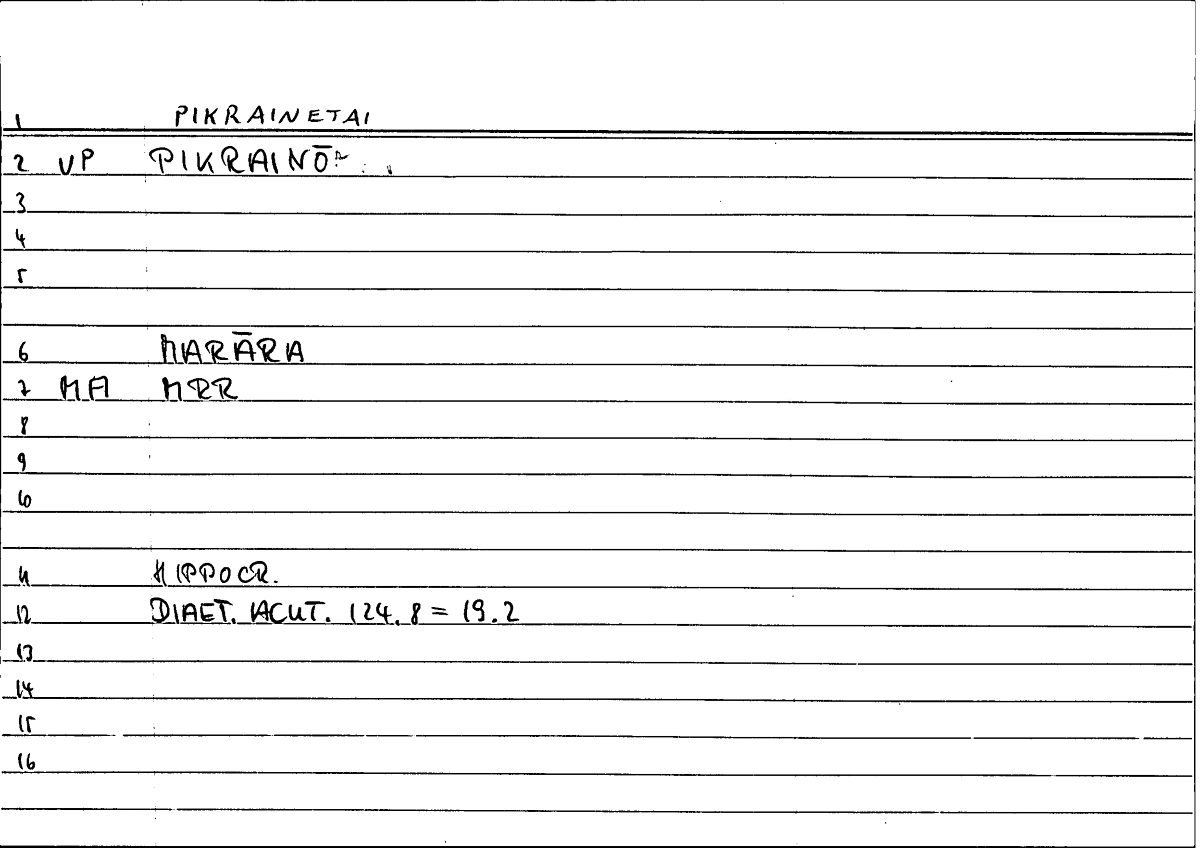 1 PIKRAINETAI
2 VP PIKRAINŌ
3
4
5
6 MARĀRA
7 MA MRR
8
9
10
11 HIPPOCR.
12 DIAET. ACUT. 124.8 = 19.2
13
14
15
16